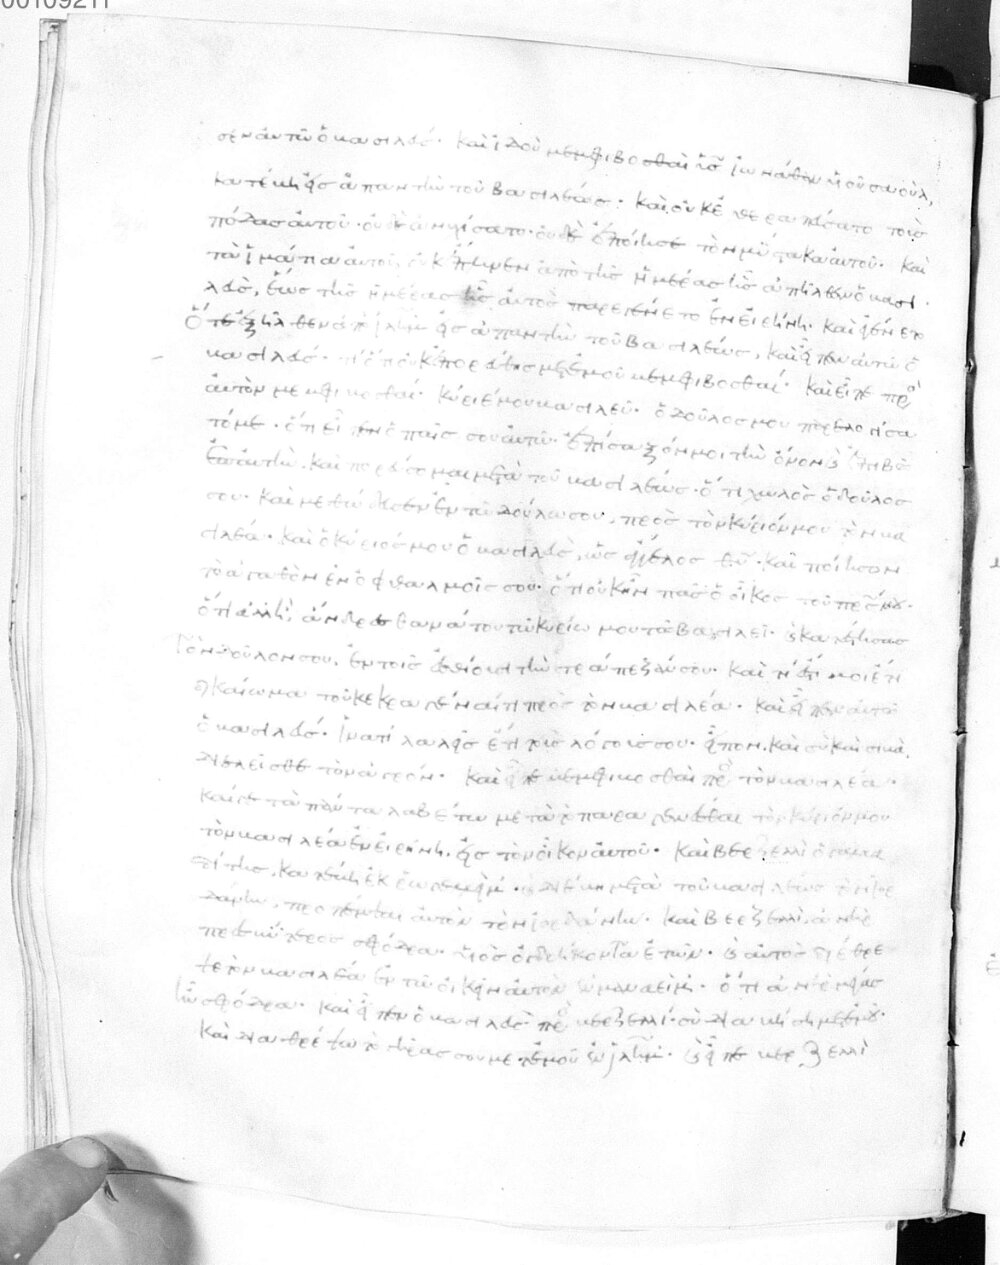 σεν αυτῶ ὁ βασιλεύς· Καὶ ἰδοὺ μεμφιβοσθαὶ υἱὸς ἰωνάθαν υἱοῦ σαοὺλ,
κατέβη εἰς ἀπαντὴν τοῦ βασιλέως· Καὶ οὐκ ἐθεράπευσατο τοὺς
πόδας αὐτοῦ· οὐδὲ ὠνυχίσατο· οὐδὲ ἐποίησε τὸν μύστακα αὐτοῦ· καὶ
τὰ ἱμάτια αὐτοῦ οὐκ ἔπλυνεν ἀπὸ τῆς ἡμέρας ἧς ἀπῆλθεν ὁ βασι
λεὺς, ἕως τῆς ἡμέρας ἧς αὐτὸς παρεγένετο ἐν εἰρήνη· Καὶ ἐγένετο
ὅτε εἰσῆλθεν εἰς ἰλημ εἰς ἀπαντὴν τοῦ βασιλέως, καὶ εἶπεν αὐτῶ ὁ
βασιλεύς· τί ὅτι οὐκ ἐπορεύθης μετ' ἐμοῦ μεμφιβοσθαί· Καὶ εἶπε πρὸς
αὐτὸν μεμφιβοσθαί· Κύριέ μου βασιλεῦ· ὁ δοῦλός μου παρελογίσα
τό με· ὅτι εἶπεν ὁ παῖς σου αὐτῶ· ἐπίσαξόν μοι τὴν ὄνον καὶ ἐπιβῶ
ἐπ' αὐτὴν, καὶ πορεύσομαι μετὰ τοῦ βασιλέως· ὅτι χωλὸς ὁ δοῦλός
σου· Καὶ μεθώδευσεν ἐν τῶ δούλω σου, πρὸς τὸν κύριόν μου τὸν βα
σιλέα· Καὶ ὁ κύριός μου ὁ βασιλεὺς, ὡς ἄγγελος θυ· καὶ ποίησον
τὸ ἀγαθὸν ἐν ὀφθαλμοῖς σου· ὅτι οὐκ ἦν πᾶς ὁ οἶκος τοῦ πρς μου·
ὅτι ἀλλ' ἢ ἄνδρες θανάτου τῶ κυρίω μου τῶ βασιλεῖ· καὶ ἔθηκας
τὸν δοῦλόν σου, ἐν τοῖς ἐσθίουσι τὴν τράπεζάν σου· Καὶ τί ἐστι μοι ἔτι
δικαίωμα τοῦ κεκραγέναι ἔτι πρὸς τὸν βασιλέα· Καὶ εἶπεν αὐτῶ
ὁ βασιλεύς· ἱνατί λαλεῖς ἔτι τοὺς λόγους σου· εἶπον, καὶ σὺ καὶ σιβὰ
διελεῖσθε τὸν ἀγρόν· Καὶ εἶπε μεμφιβοσθαὶ πρὸς τὸν βασιλέα·
καίγε τὰ πάντα λαβέτω μετὰ τὸ παραγενέσθαι τὸν κύριόν μου
τὸν βασιλέα ἐν εἰρήνη, εἰς τὸν οἶκον αὐτοῦ· Καὶ βερζελλὶ ὁ γαλαα
δίτης, κατέβη ἐκ ρωγελλὴμ· καὶ διέβη μετὰ τοῦ βασιλέως τὸν ἰορ
δάνην, προπέμψαι αὐτὸν τὸν ἰορδάνην· Καὶ βερζελλὶ, ἀνὴρ
πρεσβύτερος σφόδρα· υἱὸς ὀγδοήκοντα ἐτῶν· καὶ αὐτὸς διέθρε
ψε τὸν βασιλέα ἐν τῶ οἰκεῖν αὐτὸν ἐν μαναεὶμ· ὅτι ἀνὴρ μέγας
ἦν σφόδρα· Καὶ εἶπεν ὁ βασιλεὺς πρὸς βερζελλί· σὺ διαβήση μετ' ἐμοῦ·
καὶ διαθρέψω τὸ γῆρας σου μετ' ἐμοῦ ἐν ἰλημ· καὶ εἶπε βερζελλὶ